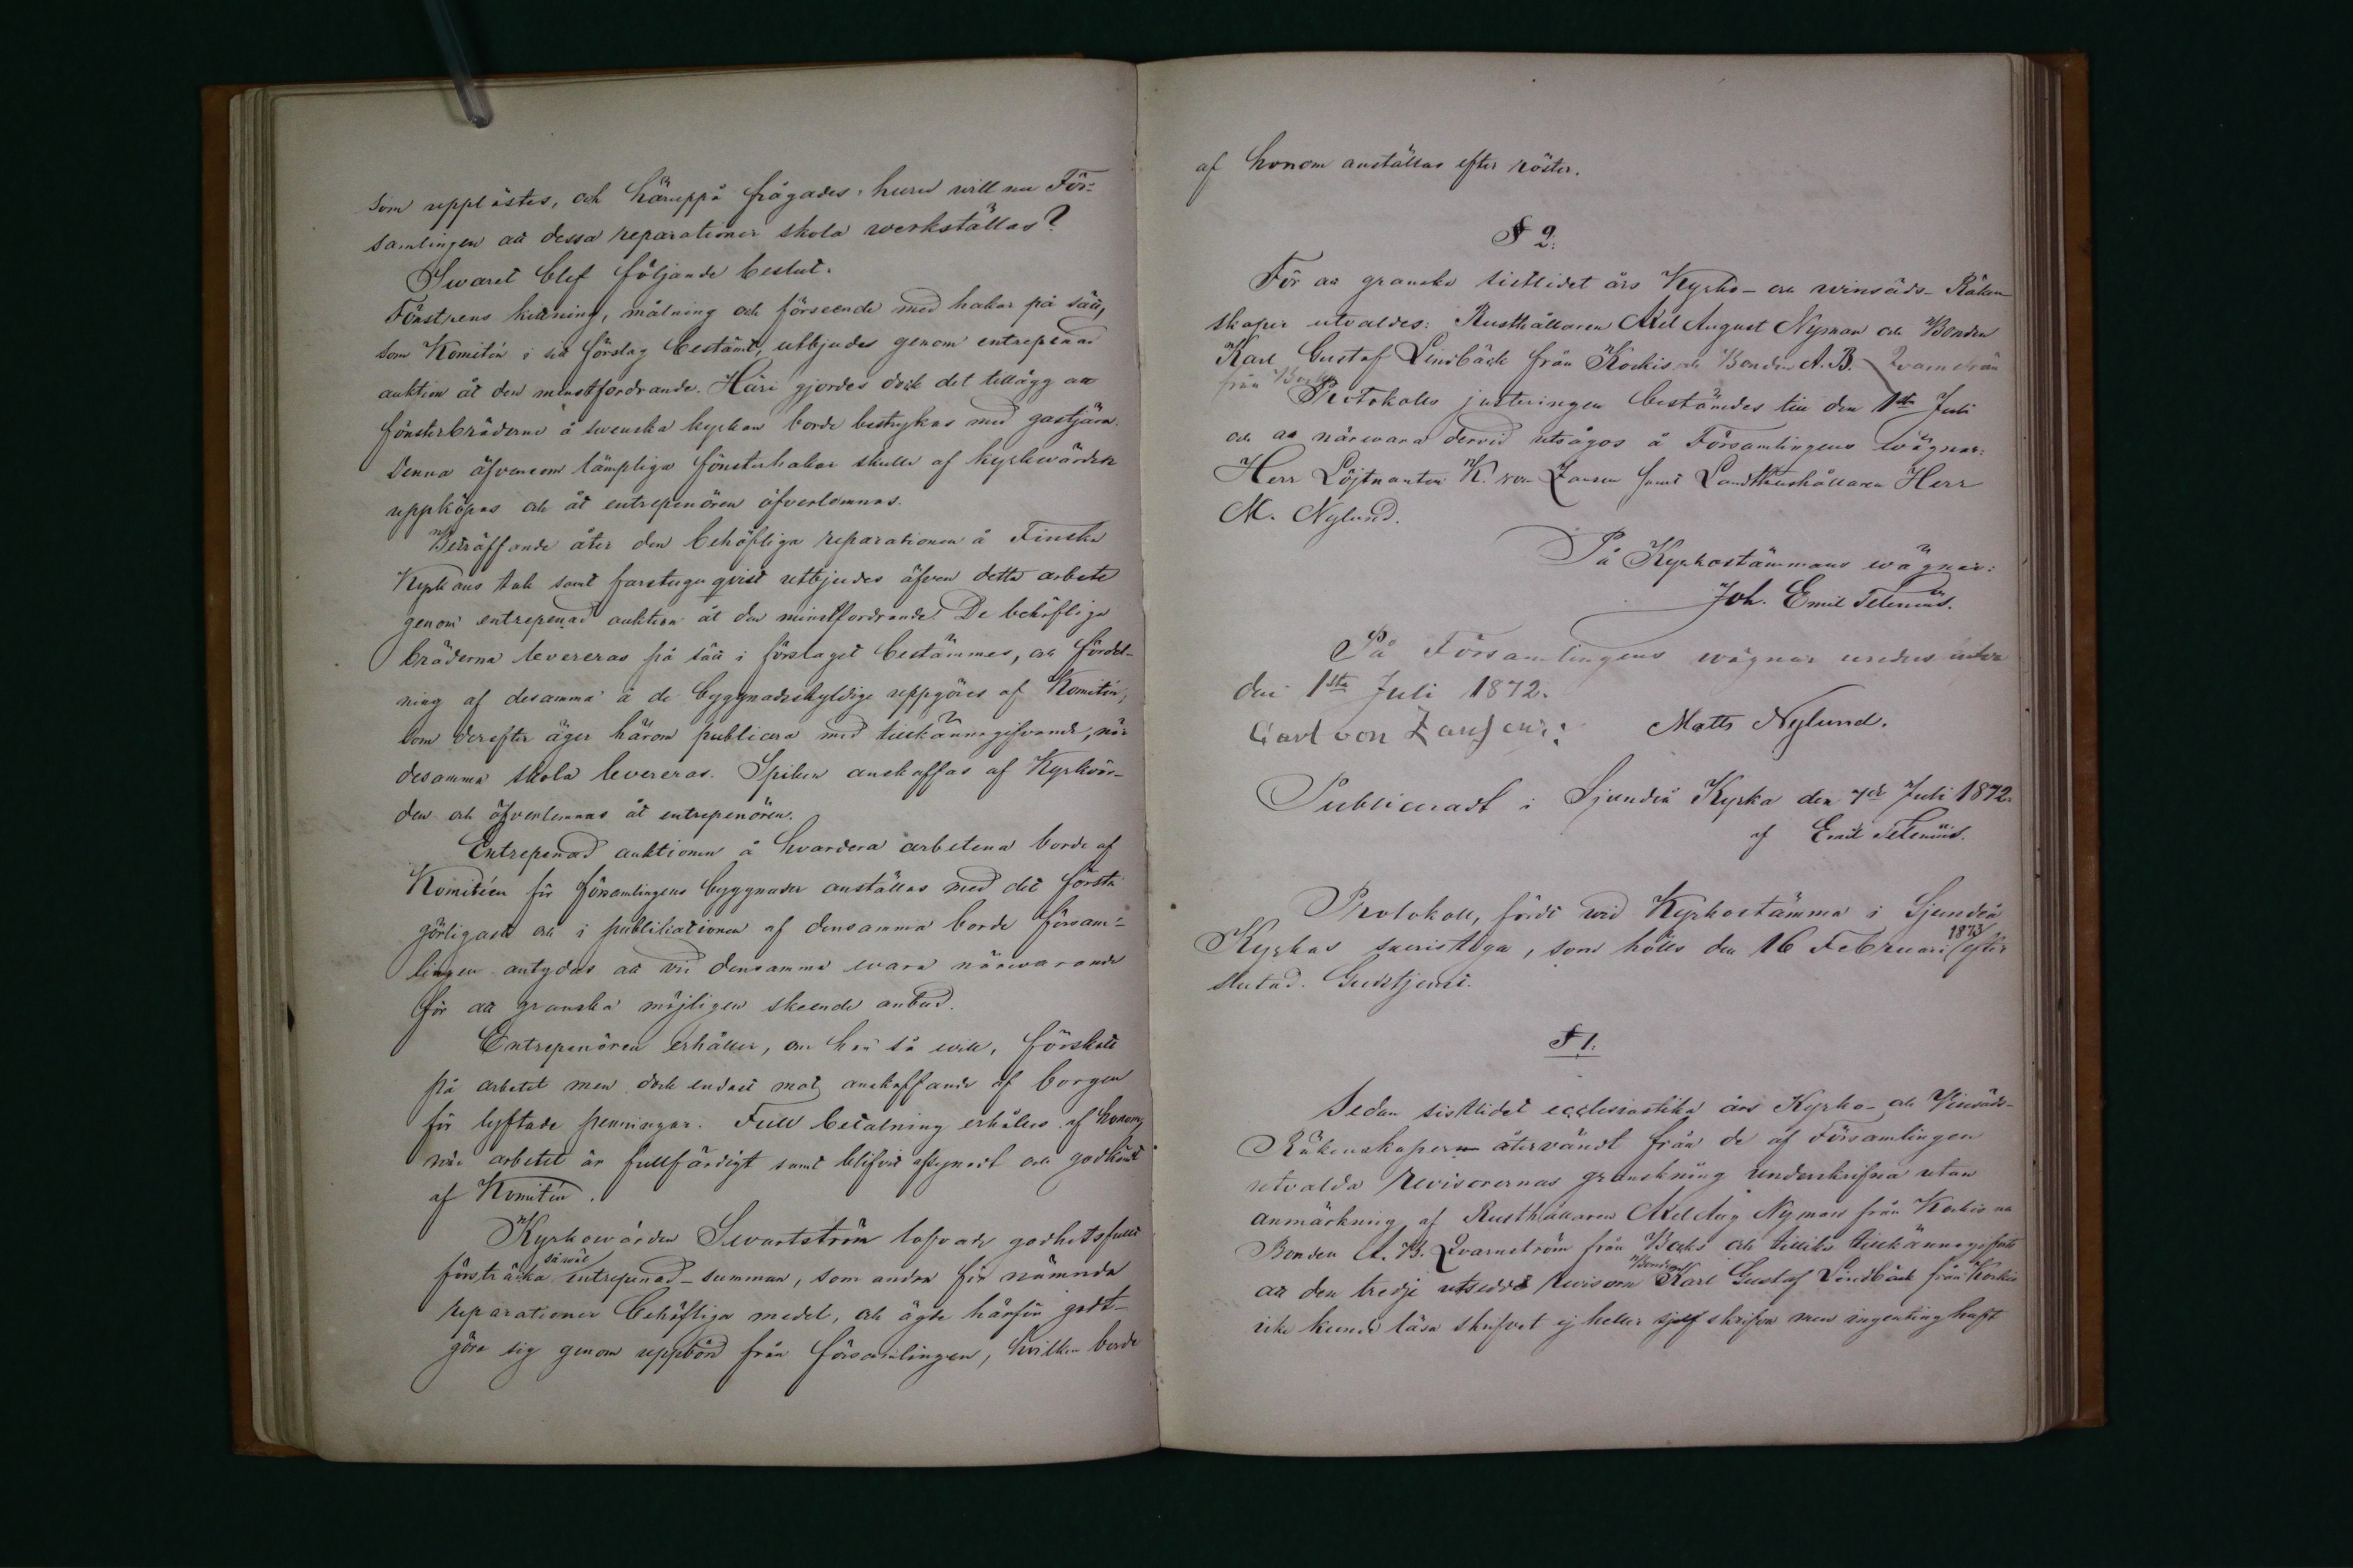 som upplästes, och häruppå frågades: huru will nu För-
samlingen att dessa reparationer skola werkställas?
Swaret blef följande beslut.
Fönstrens kittning, målning och förseende med hakar på sätt,
som Komitén i sitt förslag bestämt, utbjudes genom entrepenad
auktion åt den minstfordrande. Häri gjordes dock det tillägg att
fönsterbräderne å swenska kyrkan borde bestrykas med gastjära.
Denna äfvensom lämpliga fönsterhakar skulle af kyrkwärden
uppköpas och åt entrepenören öfverlemnas.
Beträffande åter den behöfliga reparationen å Finska
Kyrkans tak samt farstuguqvist utbjudes äfven detta arbete
genom entrepenad auktion åt den minstfordrande. De behöfliga
bräderna levereras på sätt i förslaget bestämmes, och fördel-
ning af desamma å de byggnadsskyldige uppgöres af Komitén,
som derefter äger härom publicera med tillkännagifvande, när
desamma skola levereras. Spiken anskaffas af Kyrkvär-
den och öfverlemnas åt entrepenören.
Entrepenad auktionen å hvardera arbetena borde af
Komitéen för församlingens byggnader anställas med det första
görligaste och i publikationen af densamma borde försam-
lingen antydas att vid densamma wara närwarande
för att granska möjligen skeende anbud.
Entrepenören erhåller, om han så will, förskott
på arbetet men dock endast mot anskaffande af borgen
för lyftade penningar. Full betalning erhålles af honom,
när arbetet är fullfärdigt samt blifvit afsynadt och godkändt
af Komitén.
Kyrkowärden Swartström lofvade godhetsfullt
försträcka såwäl entrepenad-summan, som andra för nämnda
reparationer behöfliga medel, och ägde härför godt-
göra sig genom uppbörd från församlingen, hvilken borde
af honom anställas efter röster.
§ 2.
För att granska sistlidet års Kyrko- och winsäds-Räken-
skaper utvaldes: Rusthållaren Axel August Nyman och Bonden
Karl Gustaf Lindbäck från Kockis och Bonden A. B.
från
Protokolls justeringen bestämdes till den 1sta Juli
och att närwara dervid utsågos å Församlingens wägnar:
Herr Löjtnanten K. von Zansen samt Landthushållaren Herr
M. Nylund.
På Kyrkostämmans wägnar:
Joh. Emil Telenius.
På Församlingens wägnar
den 1sta Juli 1872.
Carl von Zansen: Matts Nylund.
Publiceradt i Sjundeå Kyrka den 7de Juli 1872.
af Emil Telenius.
Protokoll, fördt wid Kyrkostämma i Sjundeå
Kyrkas sacristiga, som hölls den 16 Februari 1873 efter
slutad. Gudstjenst.
§ 1.
Sedan sistlidet ecclesiastika års Kyrko- och Vinsäds-
Räkenskaper återvändt från de af Församlingen
utvalda revisorernas granskning underskrifna utan
anmärkning af Rusthållaren Axel Aug Nyman från Kockis och
Bonden A. B. Qvarnström från Backs och tillika tillkännagifvits
att den tredje utsedde revisorn Bonden Karl Gustaf Lindbäck från Kockis
icke kunde läsa skrifvet ej heller sjelf skrifva men ingenting haft